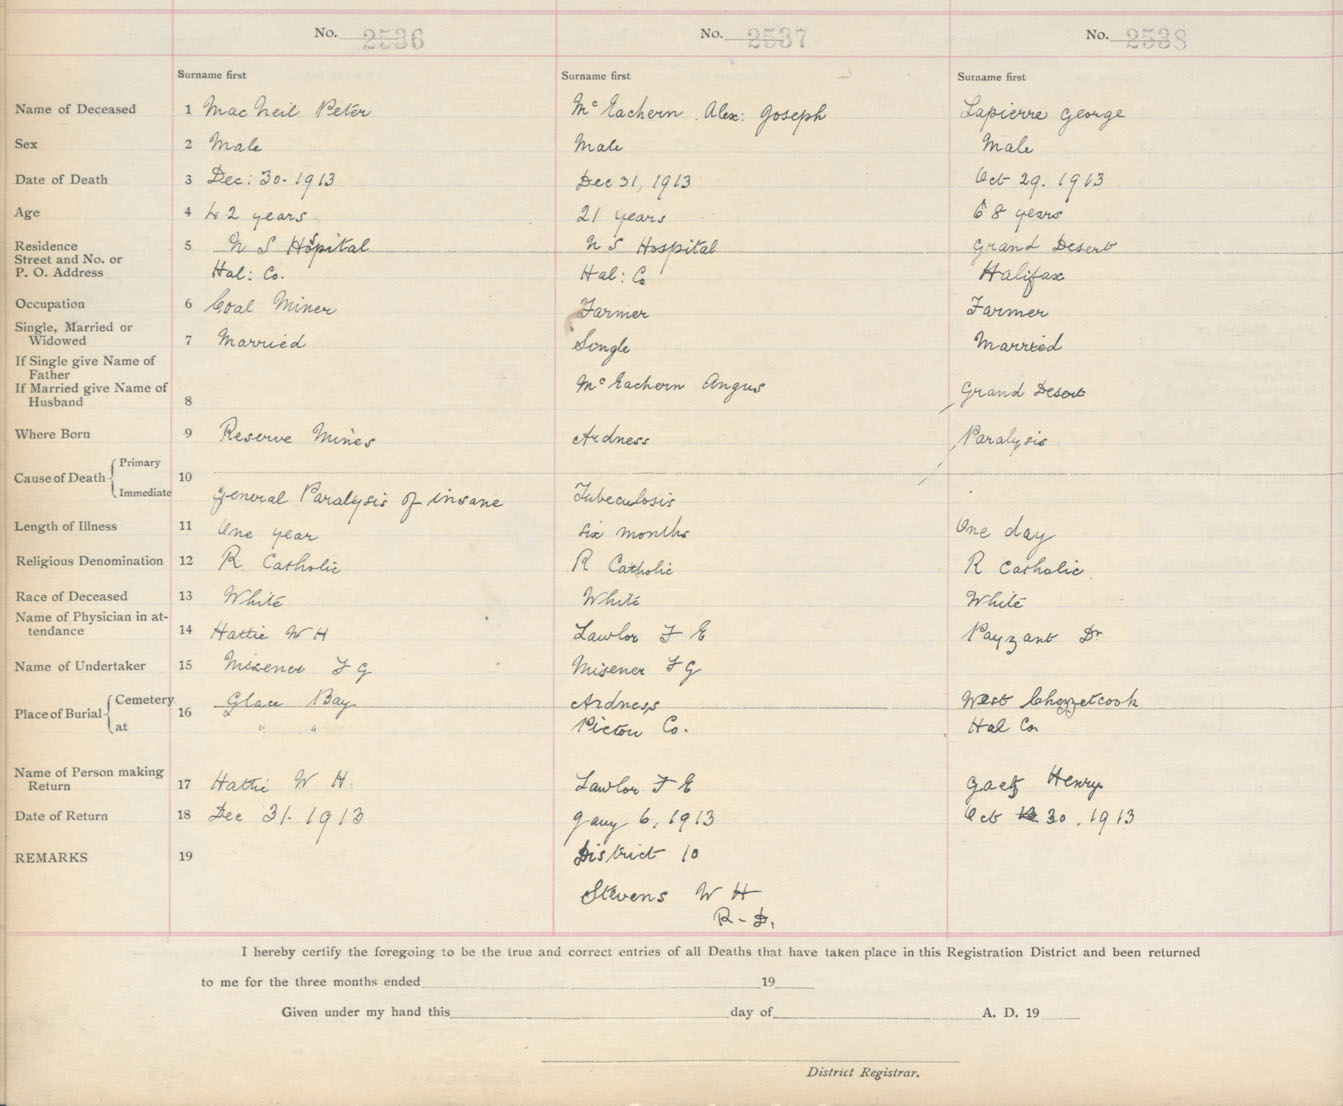 No. 2536 No. 2537 No. 2538
Surname first Surname first Surname first
Name of Deceased 1 Mac Neil Peter Mc Eachern Alex: Joseph Lapierre George
Sex 2 Male Male Male
Date of Death 3 Dec: 30. 1913 Dec 31, 1913 Oct 29. 1913
Age 4 42 years 21 years 68 years
Residence 5 N S Hospital N S Hospital Grand Desert
Street and No. or
P. O. Address Hal: Co. Hal: Co Halifax
Occupation 6 Coal Miner Farmer Farmer
Single, Married or
Widowed 7 Married Single Married
If Single give Name of
Father
If Married give Name of Mc Eachern Angus Grand Desert
Husband 8
Where Born 9 Reserve Mines Ardness Paralysis
Cause of Death Primary 10
Immediate General Paralysis of insane Tubeculosis
Length of Illness 11 One year six months One day
Religious Denomination 12 R Catholic R Catholic R Catholic
Race of Deceased 13 White White White
Name of Physician in at-
tendance 14 Hattie W H Lawlor F E Payzant Dr
Name of Undertaker 15 Misener F G Misener F G
Place of Burial Cemetery 16 Glace Bay Ardness West Chezzetcook
at " " Pictou Co. Hal Co.
Name of Person making
Return 17 Hattie W H. Lawlor F E Gaetz Henry
Date of Return 18 Dec 31. 1913 Jany 6, 1913 Oct 30. 1913
REMARKS 19 District 10
Stevens W H
R-D.
I hereby certify the foregoing to be the true and correct entries of all Deaths that have taken place in this Registration District and been returned
to me for the three months ended 19
Given under my hand this day of A. D. 19
District Registrar.